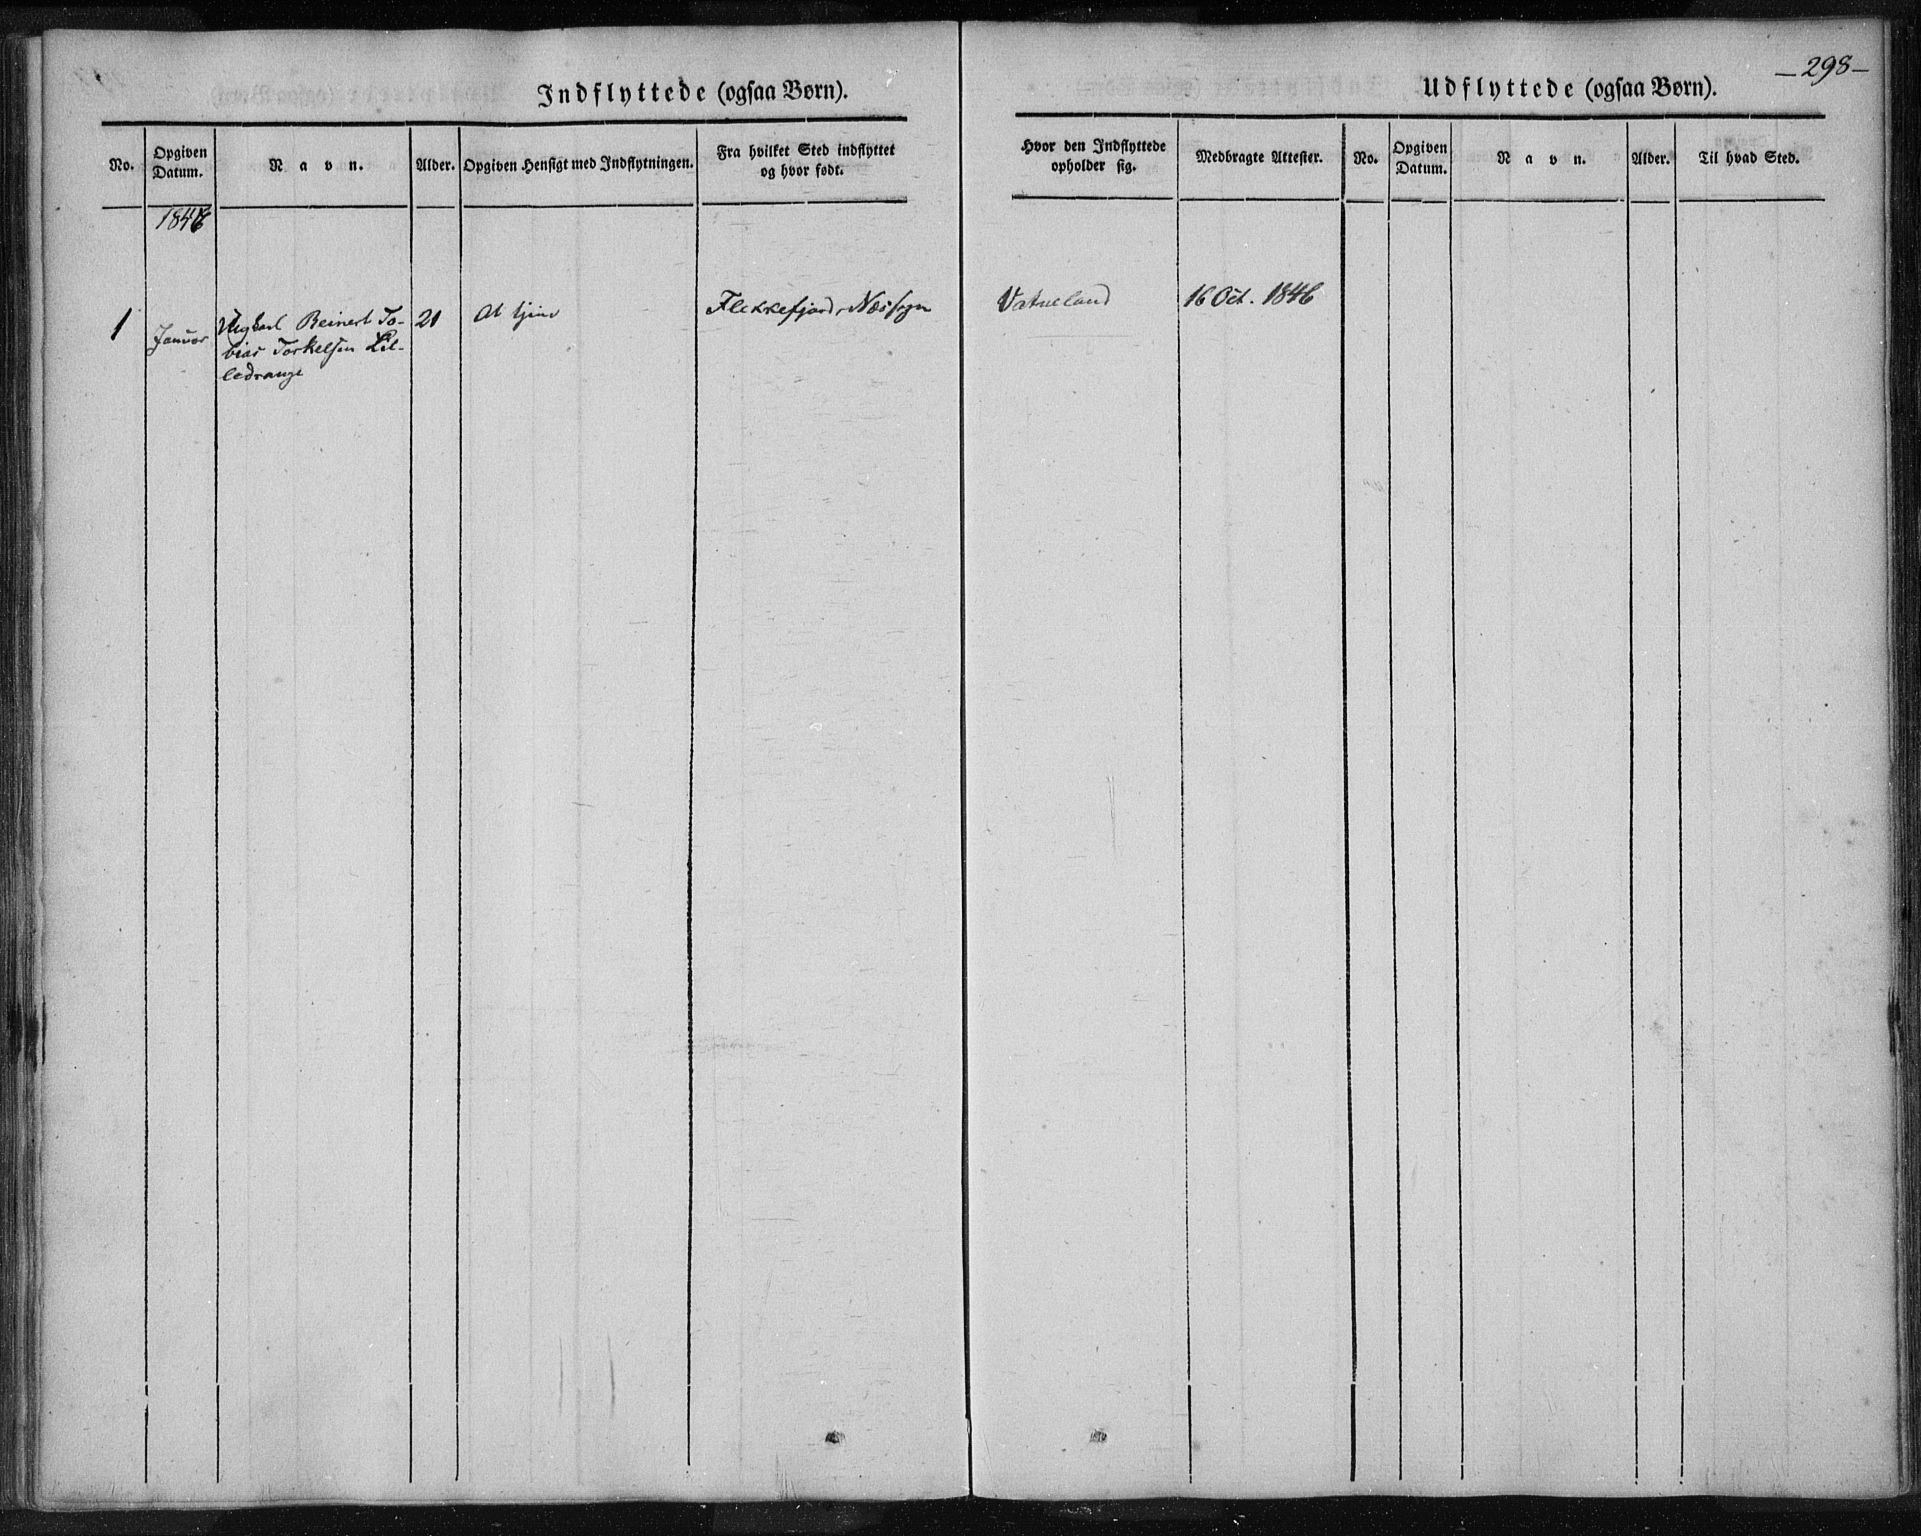 -298-
Indflyttede (ogsaa Børn).
No.
Opgiven
Datum.
Navn.
Alder.
Opgiven Hensigt med Indflytningen.
Fra hvilket Sted indflyttet
og hvor født.
1846
1
Januar
Ungkarl Beinert To-
bias Torkelsen Lil-
ledrange
21
At tjene
Flekkefjord, Næs sogn
Udflyttede (ogsaa Børn).
Hvor den Indflyttede
opholder sig.
Medbragte Attester.
No.
Opgiven
Datum.
Navn.
Alder.
Til hvad Sted.
Vatneland
16 Oct. 1846